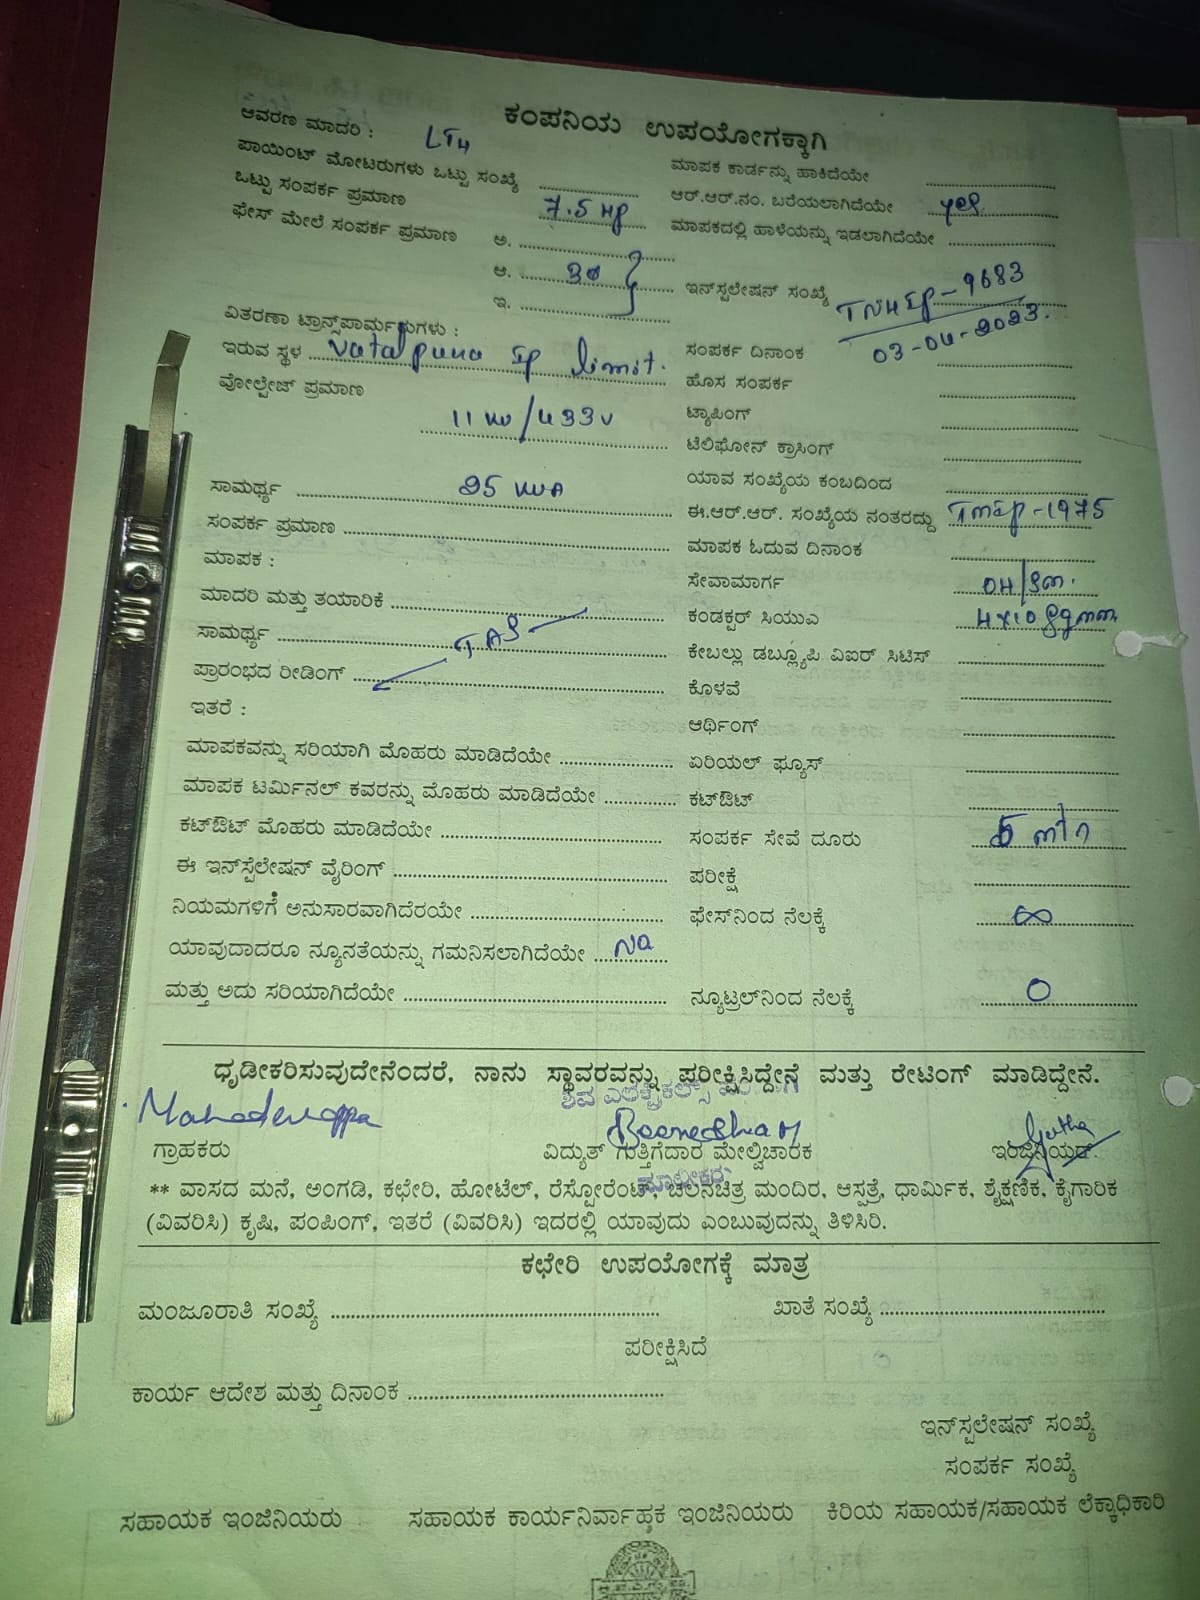 ಕಂಪನಿಯ ಉಪಯೋಗಕ್ಕಾಗಿ
ಆವರಣ ಮಾದರಿ : LT4
ಪಾಯಿಂಟ್ ಮೋಟರುಗಳು ಒಟ್ಟು ಸಂಖ್ಯೆ
ಒಟ್ಟು ಸಂಪರ್ಕ ಪ್ರಮಾಣ 7.5 Hp
ಫೇಸ್ ಮೇಲೆ ಸಂಪರ್ಕ ಪ್ರಮಾಣ ಅ.
ಆ. 3Ø
ಇ.
ವಿತರಣಾ ಟ್ರಾನ್ಸ್‌ಫಾರ್ಮರುಗಳು :
ಇರುವ ಸ್ಥಳ Vatalpura Ip limit.
ವೋಲ್ಟೇಜ್ ಪ್ರಮಾಣ
11 KV/433V
ಸಾಮರ್ಥ್ಯ 25 KVA
ಸಂಪರ್ಕ ಪ್ರಮಾಣ
ಮಾಪಕ :
ಮಾದರಿ ಮತ್ತು ತಯಾರಿಕೆ
ಸಾಮರ್ಥ್ಯ
ಪ್ರಾರಂಭದ ರೀಡಿಂಗ್
ಇತರೆ :
ಮಾಪಕವನ್ನು ಸರಿಯಾಗಿ ಮೊಹರು ಮಾಡಿದೆಯೇ
ಮಾಪಕ ಟರ್ಮಿನಲ್ ಕವರನ್ನು ಮೊಹರು ಮಾಡಿದೆಯೇ
ಕಟ್‌ಔಟ್ ಮೊಹರು ಮಾಡಿದೆಯೇ
ಈ ಇನ್‌ಸ್ಪೆಲೇಷನ್ ವೈರಿಂಗ್
ನಿಯಮಗಳಿಗೆ ಅನುಸಾರವಾಗಿದೆರಯೇ
ಯಾವುದಾದರೂ ನ್ಯೂನತೆಯನ್ನು ಗಮನಿಸಲಾಗಿದೆಯೇ No
ಮತ್ತು ಅದು ಸರಿಯಾಗಿದೆಯೇ
ಮಾಪಕ ಕಾರ್ಡನ್ನು ಹಾಕಿದೆಯೇ
ಆರ್.ಆರ್.ನಂ. ಬರೆಯಲಾಗಿದೆಯೇ yes
ಮಾಪಕದಲ್ಲಿ ಹಾಳೆಯನ್ನು ಇಡಲಾಗಿದೆಯೇ
ಇನ್‌ಸ್ಪಲೇಷನ್ ಸಂಖ್ಯೆ TNHIp-9683
ಸಂಪರ್ಕ ದಿನಾಂಕ 03-04-2023.
ಹೊಸ ಸಂಪರ್ಕ
ಟ್ಯಾಪಿಂಗ್
ಟೆಲಿಫೋನ್ ಕ್ರಾಸಿಂಗ್
ಯಾವ ಸಂಖ್ಯೆಯ ಕಂಬದಿಂದ
ಈ.ಆರ್.ಆರ್. ಸಂಖ್ಯೆಯ ನಂತರದ್ದು TMIp-1975
ಮಾಪಕ ಓದುವ ದಿನಾಂಕ
ಸೇವಾಮಾರ್ಗ OH/sm.
ಕಂಡಕ್ಟರ್ ಸಿಯುಎ 4x10 sqmm
ಕೇಬಲ್ಲು ಡಬ್ಲ್ಯೂಪಿ ವಿಐರ್ ಸಿಟಿಸ್
ಕೊಳವೆ
ಆರ್ಥಿಂಗ್
ಏರಿಯಲ್ ಫ್ಯೂಸ್
ಕಟ್‌ಔಟ್
ಸಂಪರ್ಕ ಸೇವೆ ದೂರು
ಪರೀಕ್ಷೆ
ಫೇಸ್‌ನಿಂದ ನೆಲಕ್ಕೆ ∞
ನ್ಯೂಟ್ರಲ್‌ನಿಂದ ನೆಲಕ್ಕೆ 0
ಧೃಡೀಕರಿಸುವುದೇನೆಂದರೆ, ನಾನು ಸ್ಥಾವರವನ್ನು ಪರೀಕ್ಷಿಸಿದ್ದೇನೆ ಮತ್ತು ರೇಟಿಂಗ್ ಮಾಡಿದ್ದೇನೆ.
Mahadevappa
ಗ್ರಾಹಕರು ವಿದ್ಯುತ್ ಗುತ್ತಿಗೆದಾರ ಮೇಲ್ವಿಚಾರಕ ಇಂಜಿನಿಯರ್
** ವಾಸದ ಮನೆ, ಅಂಗಡಿ, ಕಛೇರಿ, ಹೋಟೆಲ್, ರೆಸ್ಟೋರೆಂಟ್, ಚಲನಚಿತ್ರ ಮಂದಿರ, ಆಸ್ಪತ್ರೆ, ಧಾರ್ಮಿಕ, ಶೈಕ್ಷಣಿಕ, ಕೈಗಾರಿಕ
(ವಿವರಿಸಿ) ಕೃಷಿ, ಪಂಪಿಂಗ್, ಇತರೆ (ವಿವರಿಸಿ) ಇದರಲ್ಲಿ ಯಾವುದು ಎಂಬುವುದನ್ನು ತಿಳಿಸಿರಿ.
ಕಛೇರಿ ಉಪಯೋಗಕ್ಕೆ ಮಾತ್ರ
ಮಂಜೂರಾತಿ ಸಂಖ್ಯೆ ಖಾತೆ ಸಂಖ್ಯೆ
ಪರೀಕ್ಷಿಸಿದೆ
ಕಾರ್ಯ ಆದೇಶ ಮತ್ತು ದಿನಾಂಕ
ಇನ್‌ಸ್ಪಲೇಷನ್ ಸಂಖ್ಯೆ
ಸಂಪರ್ಕ ಸಂಖ್ಯೆ
ಸಹಾಯಕ ಇಂಜಿನಿಯರು ಸಹಾಯಕ ಕಾರ್ಯನಿರ್ವಾಹಕ ಇಂಜಿನಿಯರು ಕಿರಿಯ ಸಹಾಯಕ/ಸಹಾಯಕ ಲೆಕ್ಕಾಧಿಕಾರಿ